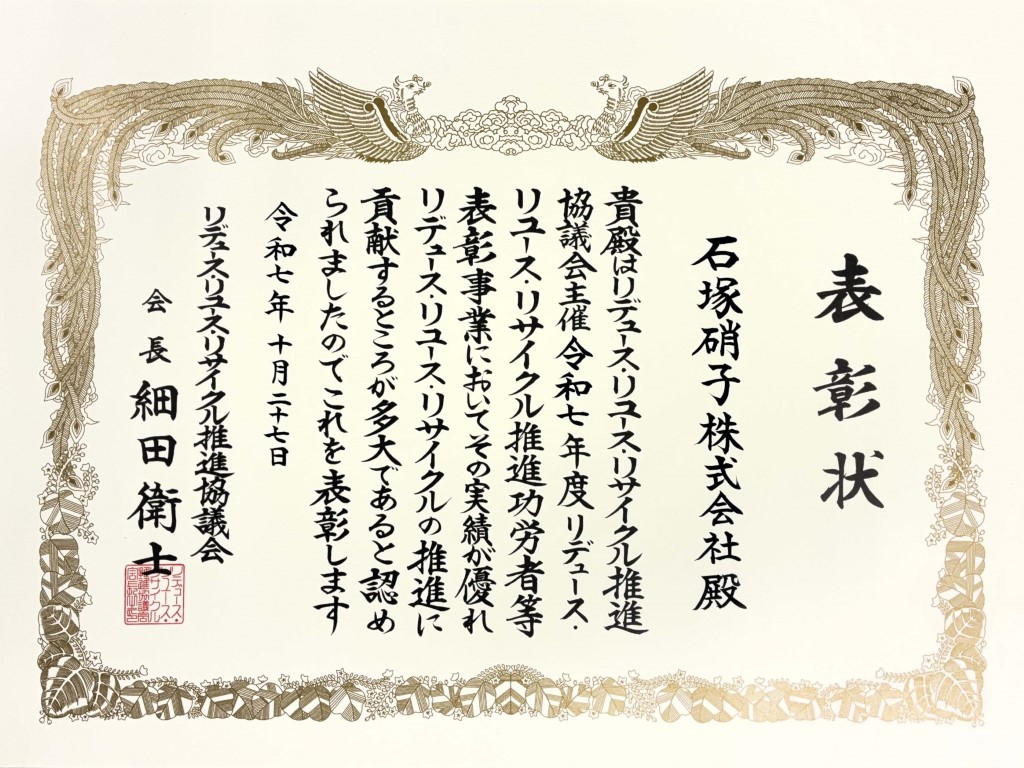 表彰状
石塚硝子株式会社殿
貴殿はリデュース・リユース・リサイクル推進
協議会主催令和七年度リデュース・
リユース・リサイクル推進功労者等
表彰事業においてその実績が優れ
リデュース・リユース・リサイクルの推進に
貢献するところが多大であると認め
られましたのでこれを表彰します
令和七年十月二十七日
リデュース・リユース・リサイクル推進協議会
会長 細田衛士